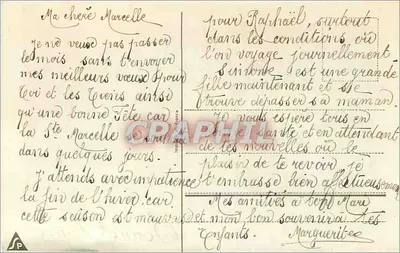 Ma chère Marcelle
Je ne veux pas passer
le mois sans t'envoyer
mes meilleurs vœux pour
toi et les tiens ainsi
qu'une bonne Fête, car
la Ste Marcelle est
dans quelques jours.
J'attends avec impatience
la fin de l'hiver car
cette saison est mauvaise
pour Raphaël, surtout
dans les conditions où
l'on voyage journellement
est une grande
fille maintenant et
trouve dépasser sa maman.
Je vous espère tous en
santé et en attendant
de tes nouvelles ou le
plaisir de te revoir, je
t'embrasse bien affectueusement
Mes amitiés à ton Mari
et mon bon souvenir à tes
Enfants. Marguerite
CPARAMA